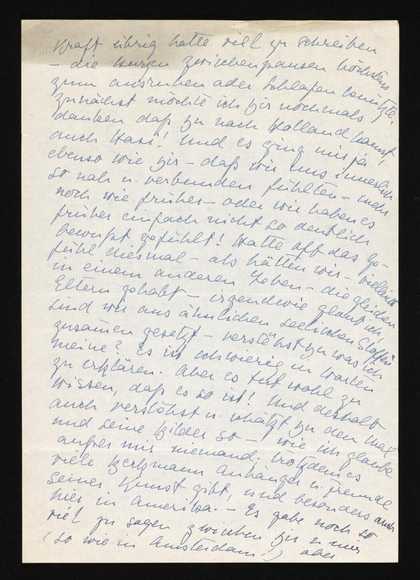 Kraft übrig hatte viel zu schreiben
– die kurzen Zwischenpausen höchstens
zum ausruhen oder schlafen benutzte.
Zunächst möchte ich Dir nochmals
danken daß Du nach Holland kamst,
auch Hasi! Und es ging mir ja
ebenso wie Dir – daß wir uns innerlich
so nah u. verbunden fühlten – mehr
noch wie früher – oder wir haben es
früher einfach nicht so deutlich
bewusst gefühlt! Hatte oft das Ge-
fühl diesmal – als hätten wir – vielleicht
in einem anderen Leben – die gleichen
Eltern gehabt – irgendwie glaub ich,
sind wir aus ähnlichen seelischen Stoffen
zusammen gesetzt – verstehst Du was ich
meine? Es ist schwierig in Worten
zu erklären. Aber es tut wohl zu
wissen, daß es so ist! Und deshalb
auch verstehst u. schätzt Du den Max
und seine Bilder so – wie ich glaube
außer mir niemand. Trotzdem es
viele Beckmann Anhänger u. Freunde
seiner Kunst gibt, und besonders auch
hier in Amerika. – Es gäbe noch so
viel zu sagen zwischen Dir u. mir
(so wie in Amsterdam!) aber